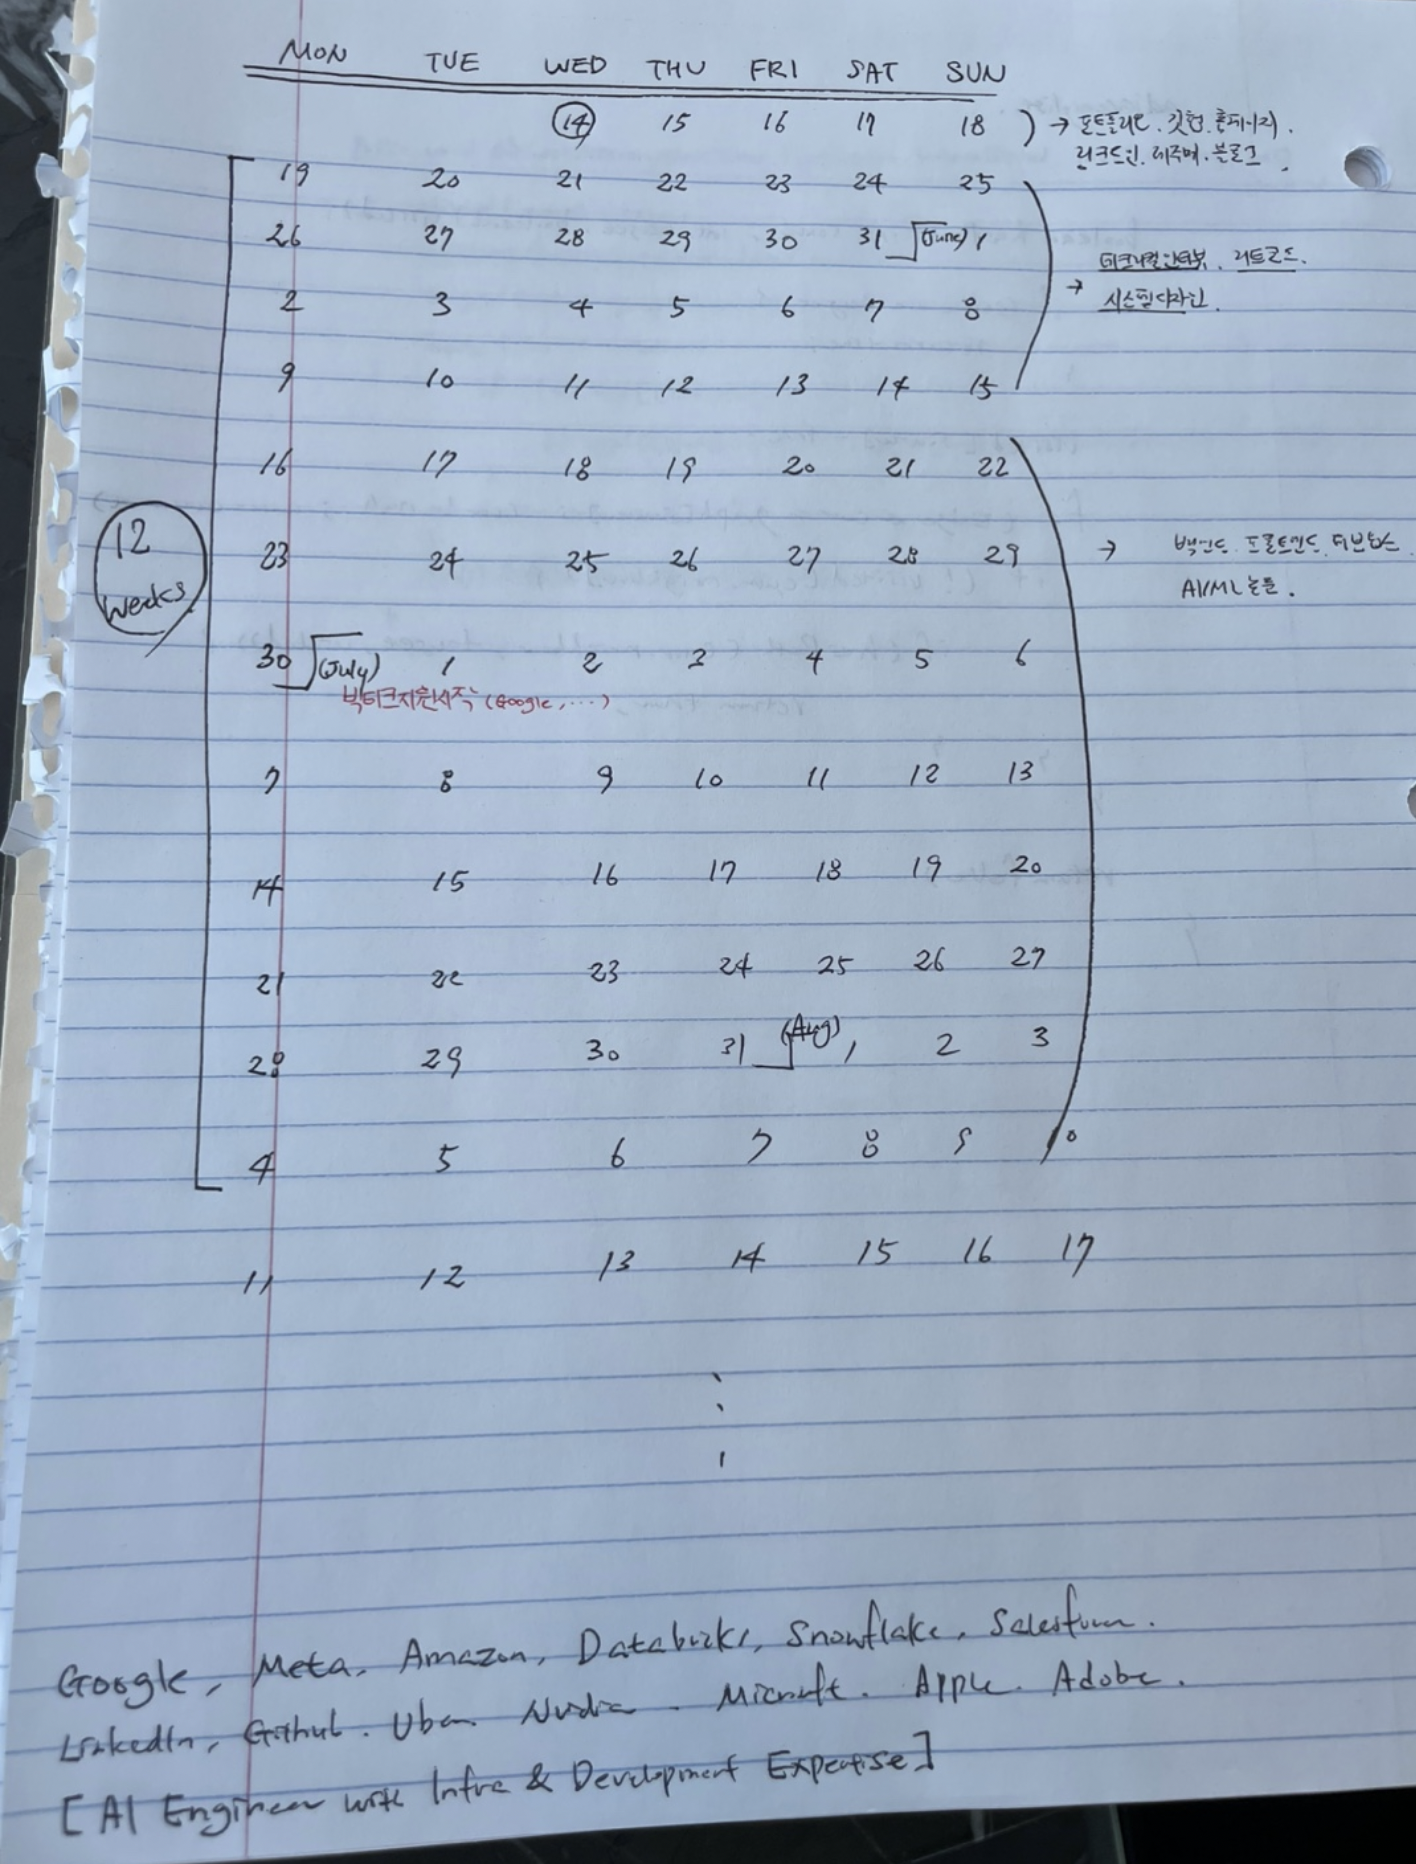 MON TUE WED THU FRI SAT SUN
14 15 16 17 18 ) → 포트폴리오. 깃헙. 홈페이지.
링크드인. 레주메. 블로그
19 20 21 22 23 24 25
26 27 28 29 30 31 (June) 1
테크니컬인터뷰. 리트코드.
2 3 4 5 6 7 8 → 시스템디자인.
9 10 11 12 13 14 15
16 17 18 19 20 21 22
12 weeks
23 24 25 26 27 28 29 → 백엔드. 프론트엔드. 데브옵스
AI/ML 논문.
30 (July) 1 2 3 4 5 6
빅테크지원시작 (Google, ...)
7 8 9 10 11 12 13
14 15 16 17 18 19 20
21 22 23 24 25 26 27
28 29 30 31 (Aug) 1 2 3
4 5 6 7 8 9 10
11 12 13 14 15 16 17
Google, Meta, Amazon, Databricks, Snowflake, Salesforce.
LinkedIn, Github. Uber. Nvidia. Microsoft. Apple. Adobe.
[AI Engineer with Infra & Development Expertise]